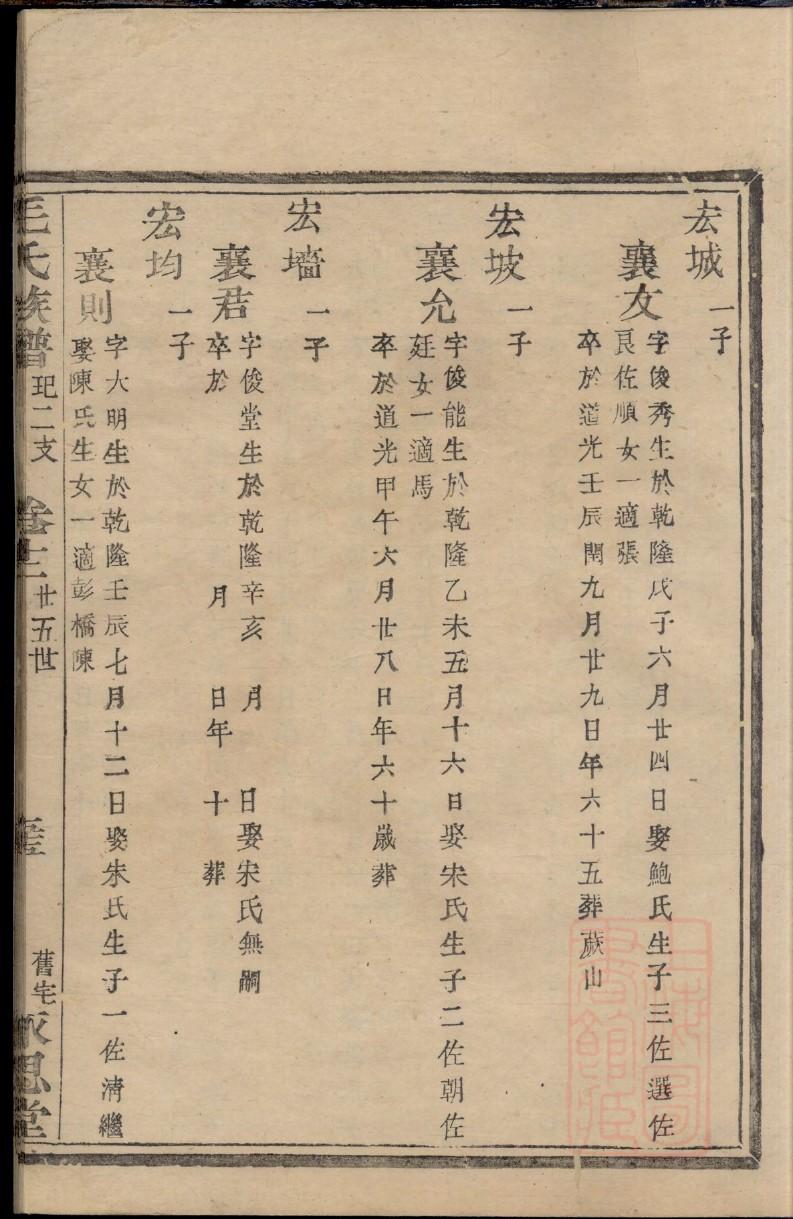 宏城 一子
襄友 字俊秀生於乾隆戊子六月廿四日娶鮑氏生子三佐選佐
良佐順女一適張
卒於道光壬辰閏九月廿九日年六十五葬蕨山
宏坡 一子
襄允 字俊能生於乾隆乙未五月十六日娶宋氏生子二佐朝佐
廷女一適馬
卒於道光甲午六月廿八日年六十歲葬
宏墻 一子
襄君 字俊堂生於乾隆辛亥 月 日娶宋氏無嗣
卒於 月 日年 十 葬
宏均 一子
襄則 字大明生於乾隆壬辰七月十二日娶朱氏生子一佐清繼
娶陳氏生女一適彭橋陳
王氏族譜 玘二支 卷十二 廿五世 舊宅永思堂
上海圖書館藏